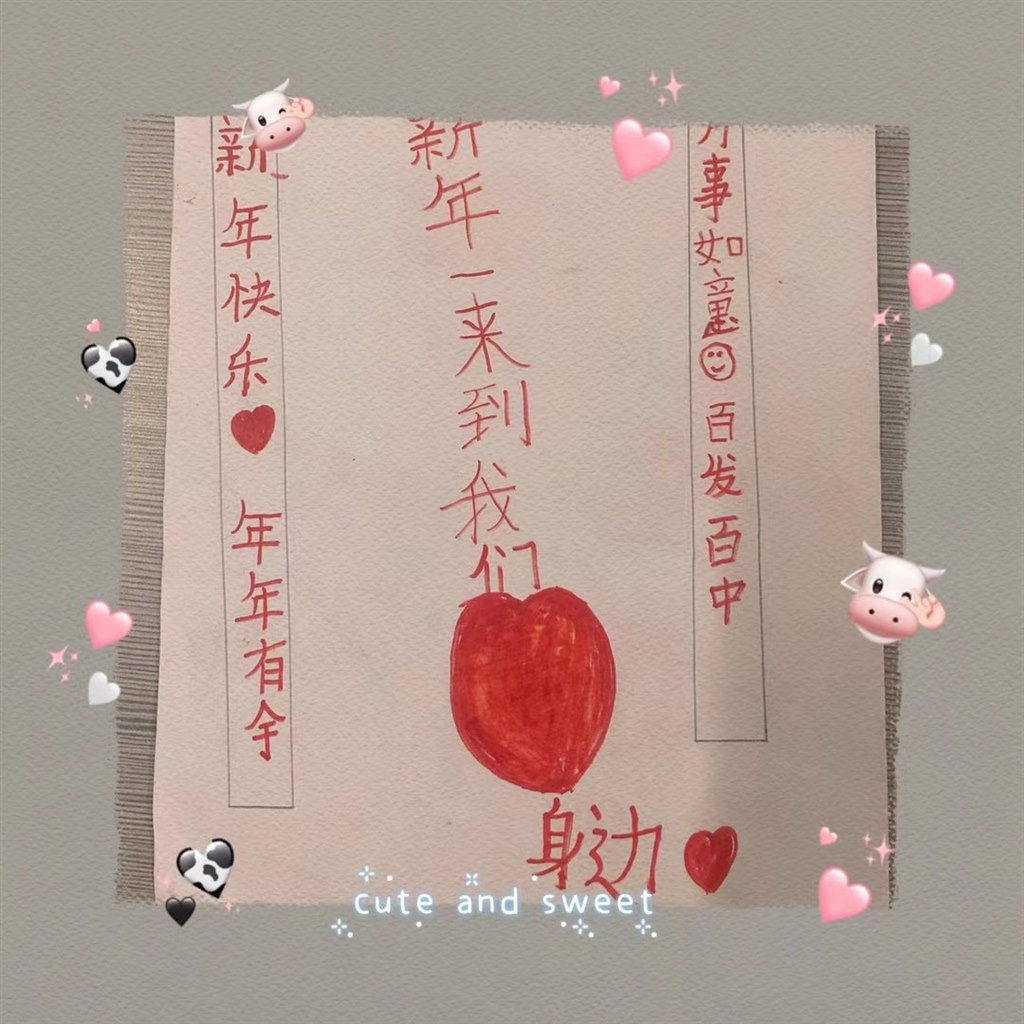 新年快乐 年年有余
新年一来到我们
身边
万事如意 百发百中
cute and sweet